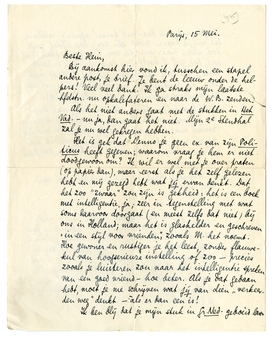 Parijs, 15 Mei.
Beste Hein,
Bij aankomst hier vond ik, tusschen een stapel
andere post, je brief. Je bent de leeuw onder de hel-
pers! Veel veel dank! Ik ga straks mijn laatste
hfdstn. nog onbelafateren en naar de W.B. zenden.
Als het niet anders gaat met de stukken in Het
Vad. — nu ja, dan gaat het niet. Mijn 2e Stendhal
zal je nu wel gekregen hebben.
Het is gek dat Menno je geen ex. van zijn Poli-
ticus heeft gegeven; waarom vraag je hem er niet
doodgewoon om? Ik wil er wel met je over praten
(op papier dan), maar eerst als je het zelf gelezen
hebt en mij gezegd hebt wat jij ervan denkt. Dat
het zoo "zwaar" zou zijn is gekheid; het is een boek
met intelligentie, ja, zeer in tegenstelling met wat
soms daarvoor doorgaat (en meest zelfs dat niet) bij
ons in Holland, maar het is glashelder en geschreven
in een stijl voor vrienden, zooals M. het noemt.
Hoe gewoner en rustiger je het leest, zonder flauwe-
kul van hoogserieuze instelling of zoo — precies
zooals je luisteren zou naar het intelligente spreken
van een goed vriend — hoe beter. Als je dat gedaan
hebt, moet je me schrijven wat jij van dien "verkeer-
den weg" denkt — als er dan een is!
Ik ben blij dat je mijn stuk in Gr. Ned. geboid am